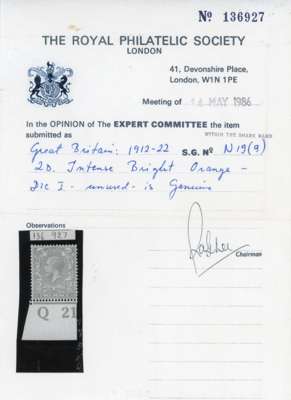 No 136927
THE ROYAL PHILATELIC SOCIETY
LONDON
41, Devonshire Place,
London, W1N 1PE
Meeting of 14 MAY 1986
In the OPINION of The EXPERT COMMITTEE the item
submitted as
WITHIN THE SHADE BAND
Great Britain: 1912-22 S.G. No N19(9)
2D. Intense Bright Orange -
Die I - unused - is Genuine
Chairman
Observations
136 927
Q 21